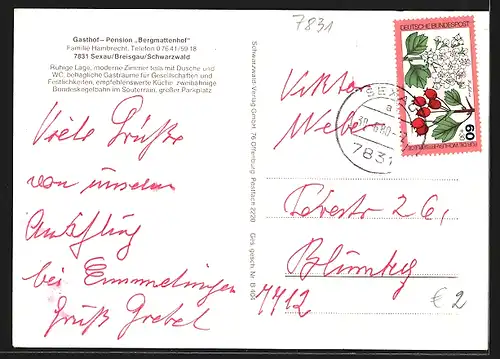 Gasthof – Pension „Bergmattenhof"
Familie Hambrecht, Telefon 0 76 41/59 18
7831 Sexau/Breisgau/Schwarzwald
Ruhige Lage, moderne Zimmer teils mit Dusche und
WC, behagliche Gasträume für Gesellschaften und
Festlichkeiten, empfehlenswerte Küche, zweibahnige
Bundeskegelbahn im Souterrain, großer Parkplatz.
Viele Grüße
von unserem
Ausflug
bei Emmendingen
Gruß
Schwarzwald-Verlag GmbH, 76 Offenburg, Postfach 2229
Ges. gesch. Nr. B 464
7831
DEUTSCHE BUNDESPOST
60
SEXAU
a
7831
Viktor
Weber
26,
Blumberg
7712
€ 2